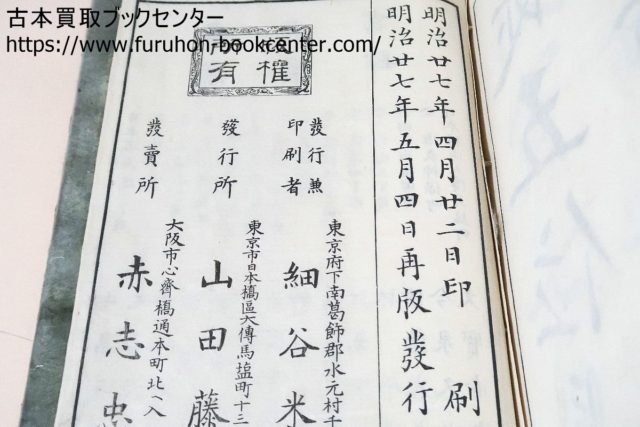 古本買取ブックセンター
https://www.furuhon-bookcenter.com/
明治廿七年四月廿二日印刷
明治廿七年五月四日再版發行
權
有
發行兼
印刷者
東京府下南葛飾郡水元村
細谷米
發行所
東京市日本橋區大傳馬塩町十三
山田藤
發賣所
大阪市心齋橋通本町北ヘ入
赤志忠